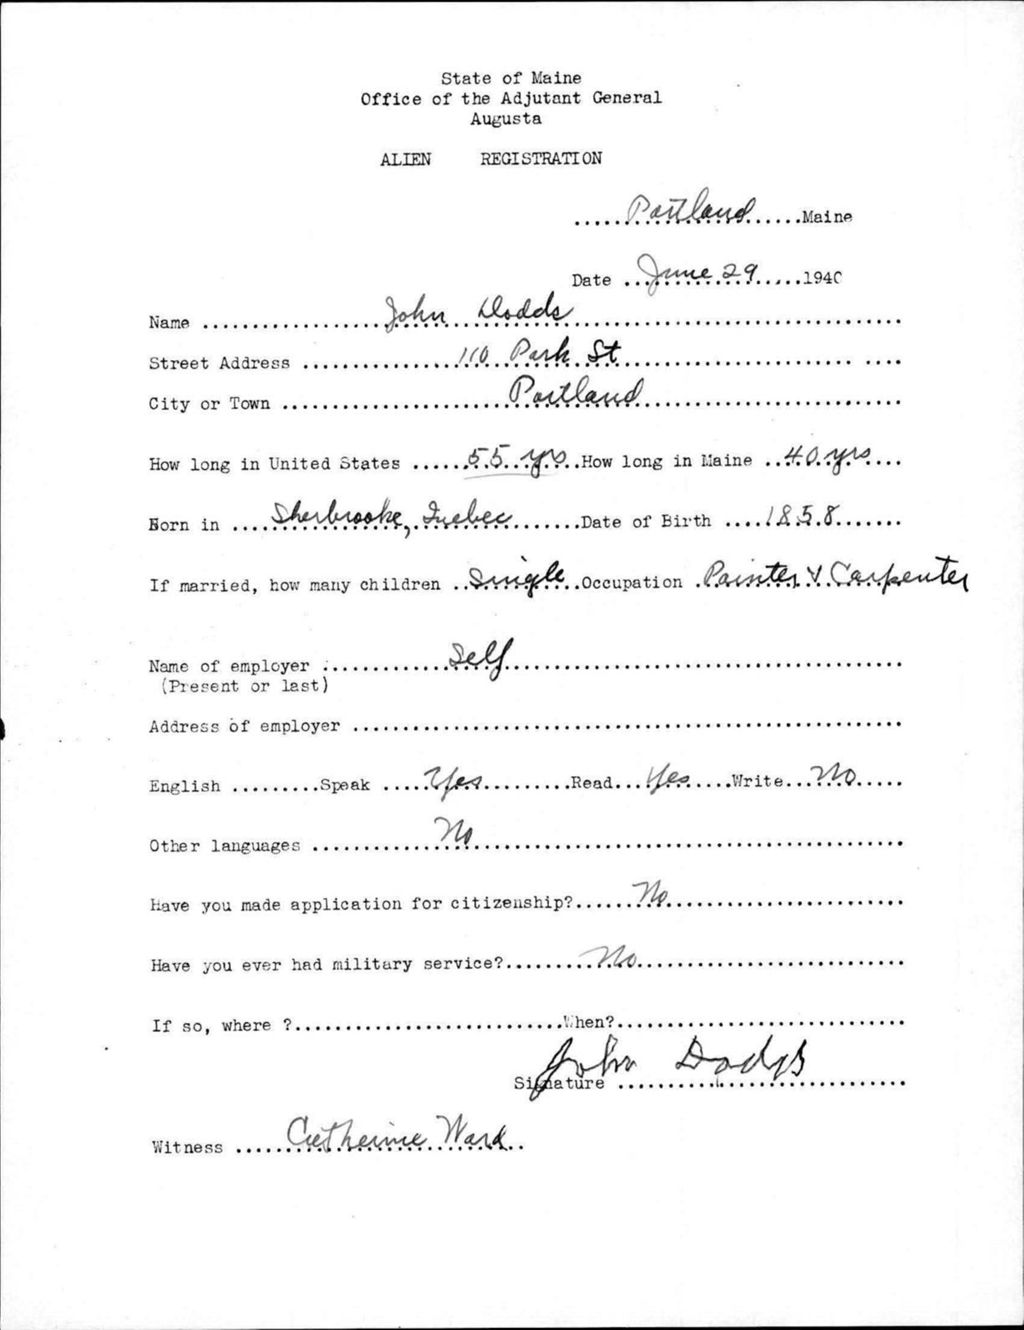 State of Maine
Office of the Adjutant General
Augusta
ALIEN REGISTRATION
.....Portland.....Maine
Date ..June 29.....1940
Name ..................John Dodds..................................
Street Address ...............110 Park St........................ ....
City or Town ......................Portland..........................
How long in United States ......55 yrs..How long in Maine ..40 yrs....
Born in ....Sherbrooke, Quebec.......Date of Birth ....1858.......
If married, how many children ..Single..Occupation .Painter & Carpenter
Name of employer .............Self........................................
(Present or last)
Address of employer .......................................................
English .........Speak .....Yes..........Read...Yes.....Write...No.....
Other languages .............No...........................................
Have you made application for citizenship?......No........................
Have you ever had military service?.........No...........................
If so, where ?...........................When?.............................
John Dodds
Signature .............................
Witness .....Catherine Ward..